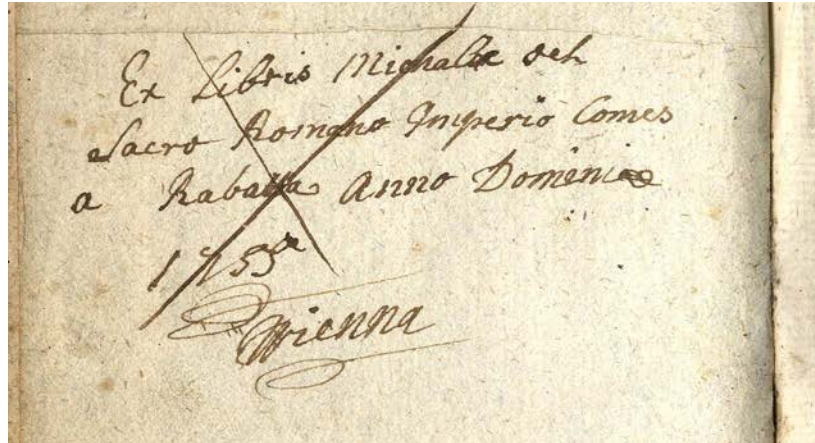 Ex Libris Michalæ del
Sacro Romano Imperio Comes
a Rabatta Anno Domini
1753
Wienna